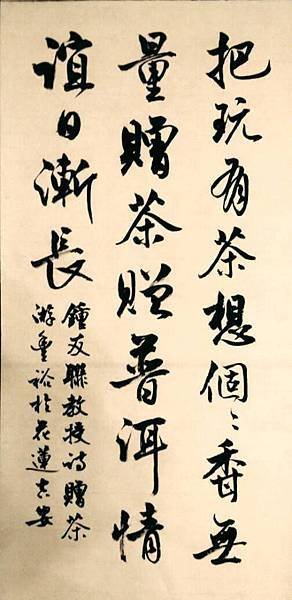 把玩有茶想個〻香無
量贈茶贈普洱情
誼日漸長
鍾友聯教授詩贈茶
游重裕於花蓮吉安